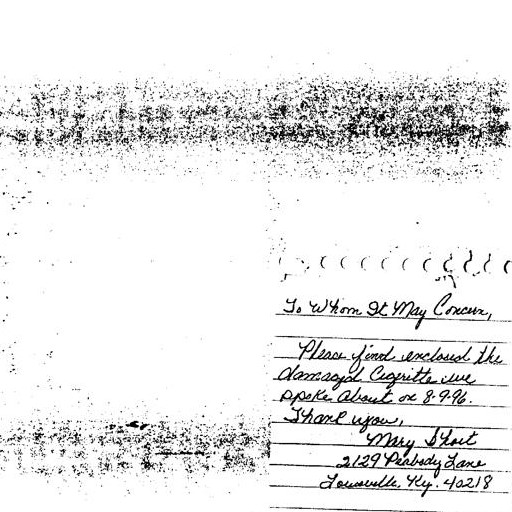 To Whom It May Concern,
Please find enclosed the
damaged Cigritte we
spoke about on 8-9-96.
Thank you,
Mary Short
2129 Peabody Lane
Louisville, Ky. 40218